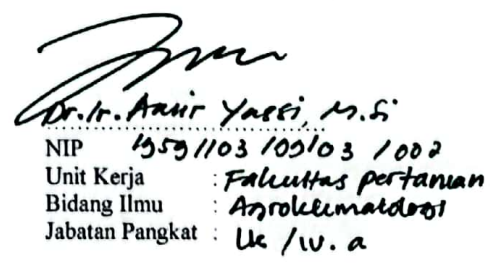 Dr. Ir. Amir Yassi, M.Si
NIP 19591103 199103 1 002
Unit Kerja : Fakultas pertanian
Bidang Ilmu : Agroklimatologi
Jabatan Pangkat : Lk / IV. a